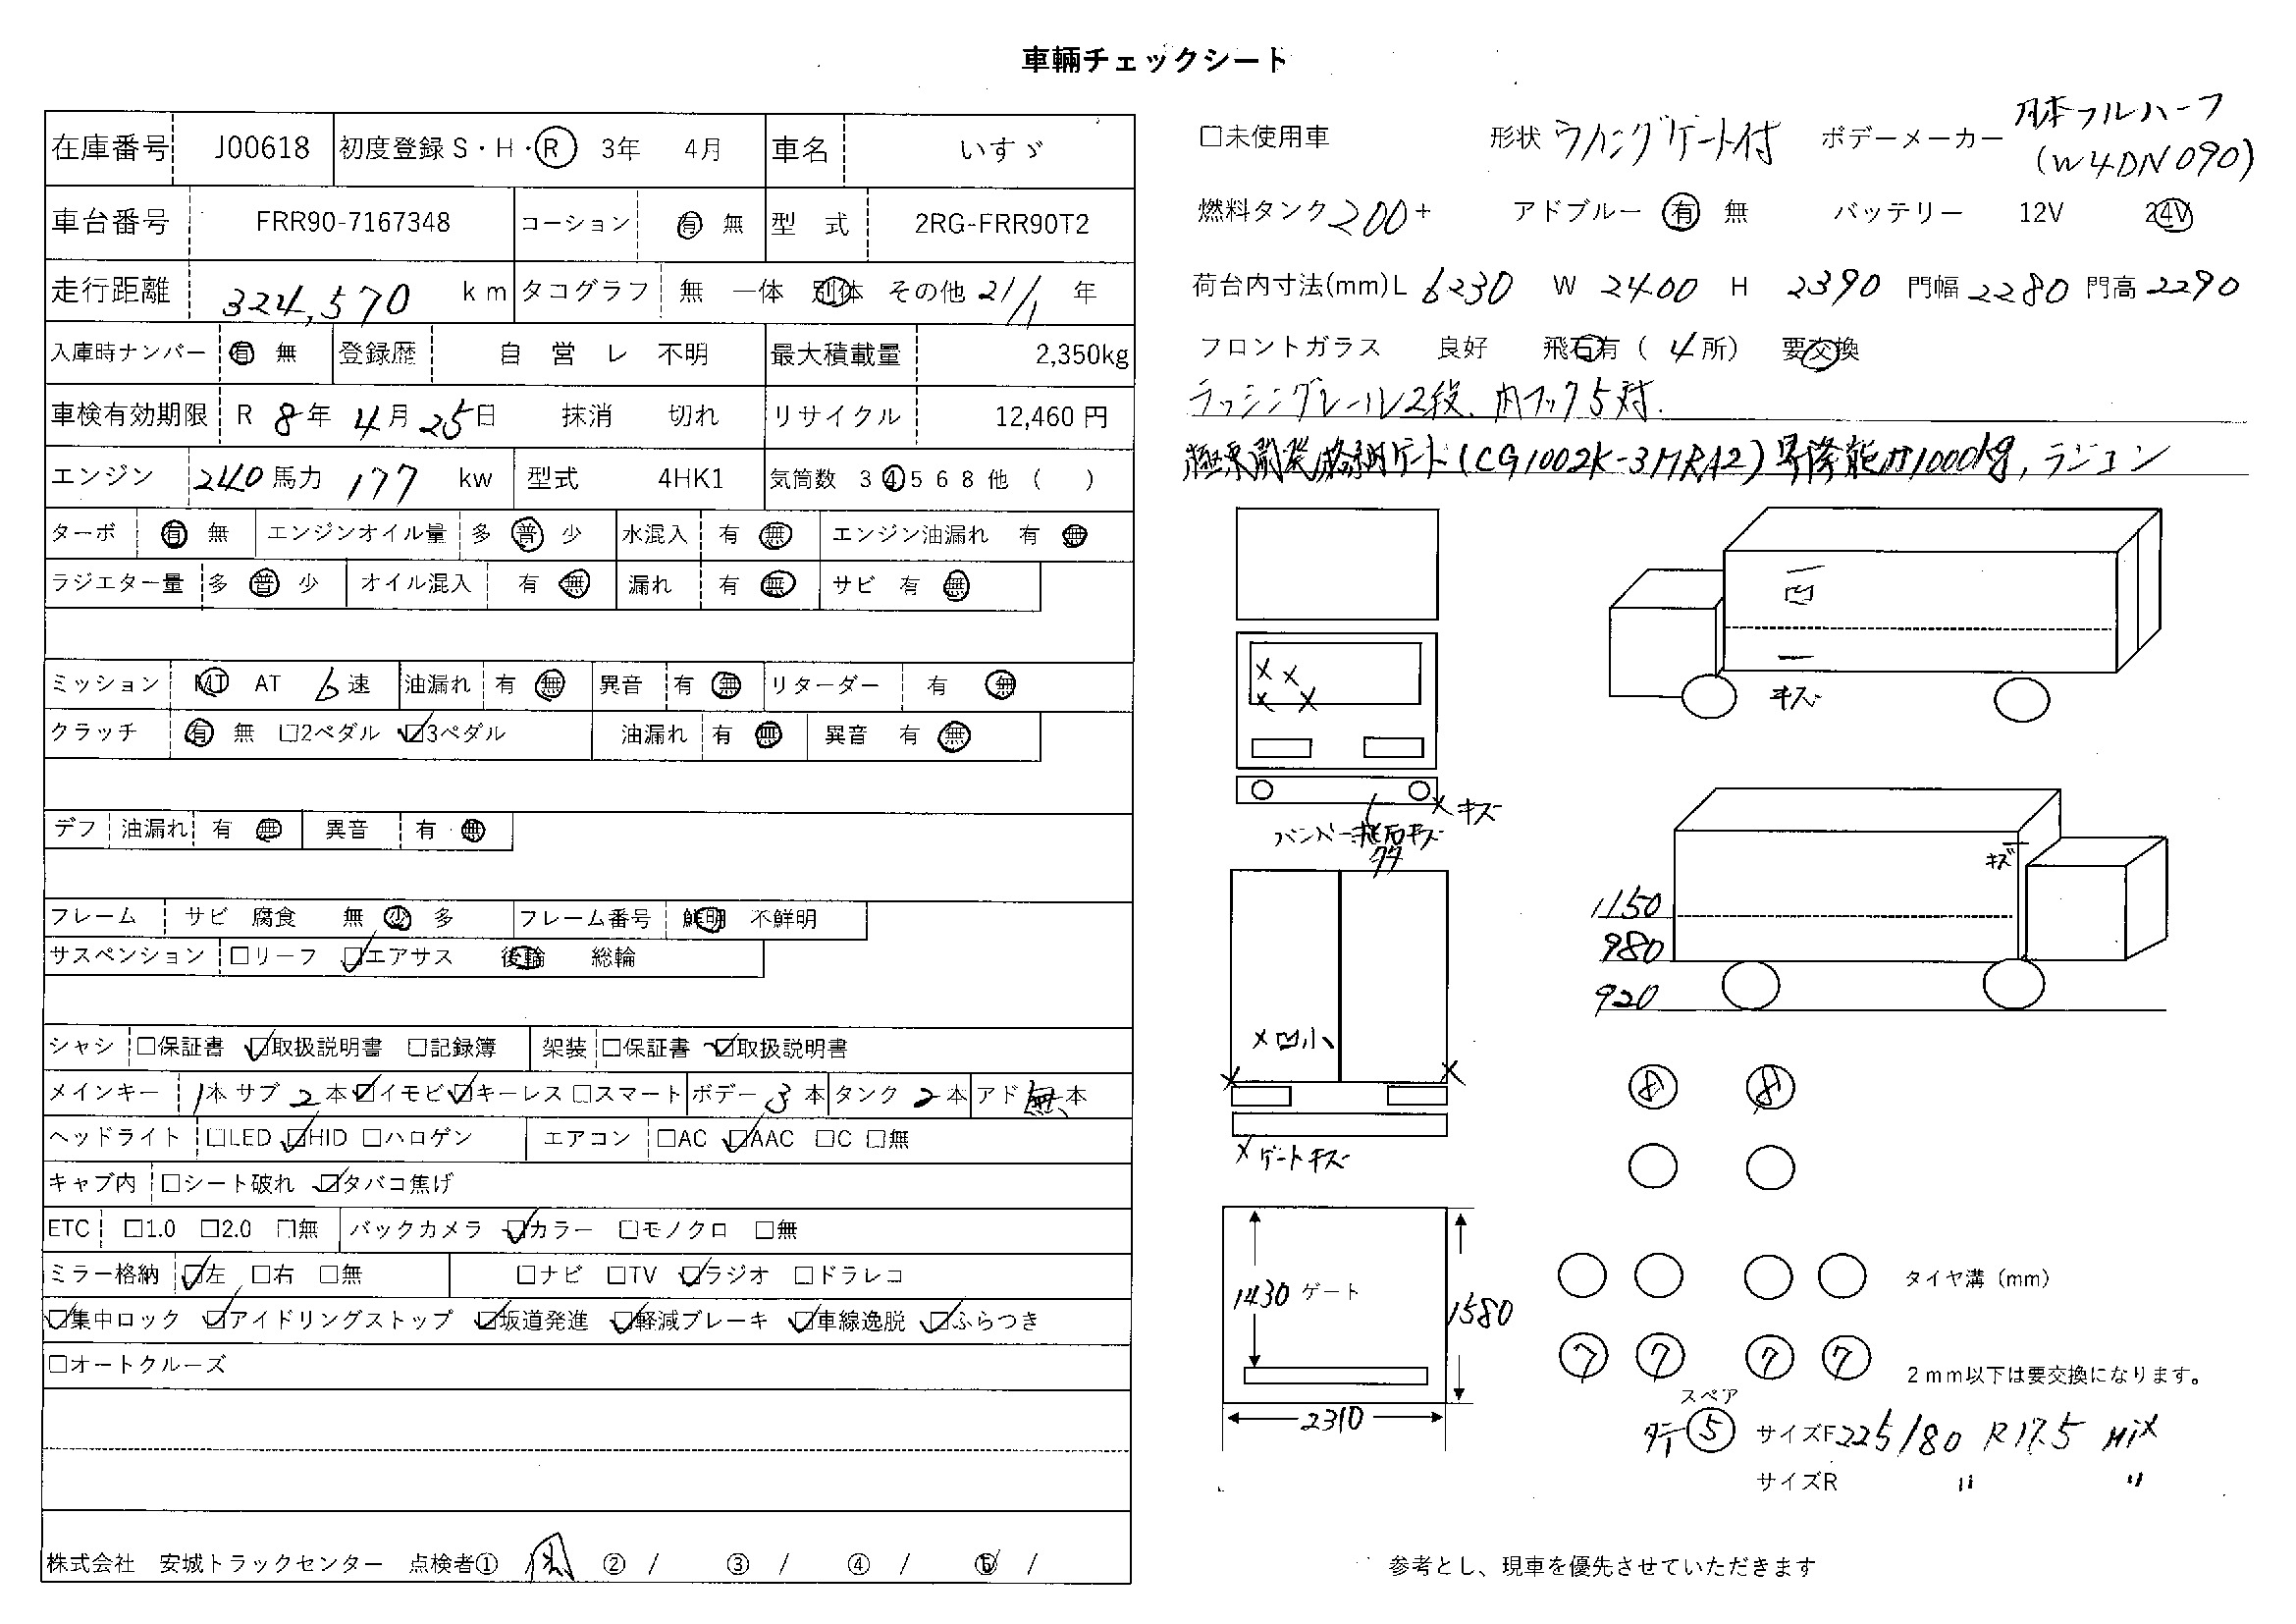 車輌チェックシート
在庫番号 J00618 初度登録 S・H・R 3年 4月 車名 いすゞ
車台番号 FRR90-7167348 コーション 有 無 型 式 2RG-FRR90T2
走行距離 324,570 km タコグラフ 無 一体 別体 その他 21/1 年
入庫時ナンバー 有 無 登録歴 自 営 レ 不明 最大積載量 2,350kg
車検有効期限 R 8年 4月 25日 抹消 切れ リサイクル 12,460 円
エンジン 240馬力 177 kw 型式 4HK1 気筒数 3 4 5 6 8 他 ( )
ターボ 有 無 エンジンオイル量 多 普 少 水混入 有 無 エンジン油漏れ 有 無
ラジエター量 多 普 少 オイル混入 有 無 漏れ 有 無 サビ 有 無
ミッション MT AT 6速 油漏れ 有 無 異音 有 無 リターダー 有 無
クラッチ 有 無 □2ペダル ☑3ペダル 油漏れ 有 無 異音 有 無
デフ 油漏れ 有 無 異音 有・無
フレーム サビ 腐食 無 少 多 フレーム番号 鮮明 不鮮明
サスペンション □リーフ ☑エアサス 後輪 総輪
シャシ □保証書 ☑取扱説明書 □記録簿 架装 □保証書 ☑取扱説明書
メインキー 1本 サブ 2本 ☑イモビ ☑キーレス □スマート ボデー 3本 タンク 2本 アド 無 本
ヘッドライト □LED ☑HID □ハロゲン エアコン □AC ☑AAC □C □無
キャブ内 □シート破れ ☑タバコ焦げ
ETC □1.0 □2.0 □無 バックカメラ ☑カラー □モノクロ □無
ミラー格納 ☑左 □右 □無 □ナビ □TV ☑ラジオ □ドラレコ
☑集中ロック ☑アイドリングストップ ☑坂道発進 ☑軽減ブレーキ ☑車線逸脱 ☑ふらつき
□オートクルーズ
株式会社 安城トラックセンター 点検者① / ② / ③ / ④ / ⑤ /
□未使用車 形状 ウイングゲート付 ボデーメーカー 日本フルハーフ
(W4DN090)
燃料タンク 200+ アドブルー 有 無 バッテリー 12V 24V
荷台内寸法(mm)L 6230 W 2400 H 2390 門幅 2280 門高 2290
フロントガラス 良好 飛石有 ( 4所) 要交換
ラッシングレール2段、内フック5対.
極東開発格納ゲート(CG1002K-3MRA2)昇降能力1000kg, ラジコン
キズ
キズ
バンパー飛石キズ
多
キズ
1150
980
920
凹小
ゲートキズ
1430 ゲート 1580
2310
8 8
タイヤ溝（mm）
7 7 7 7
2mm以下は要交換になります。
スペア
5 サイズF 225/80 R17.5 MIX
サイズR 〃 〃
参考とし、現車を優先させていただきます